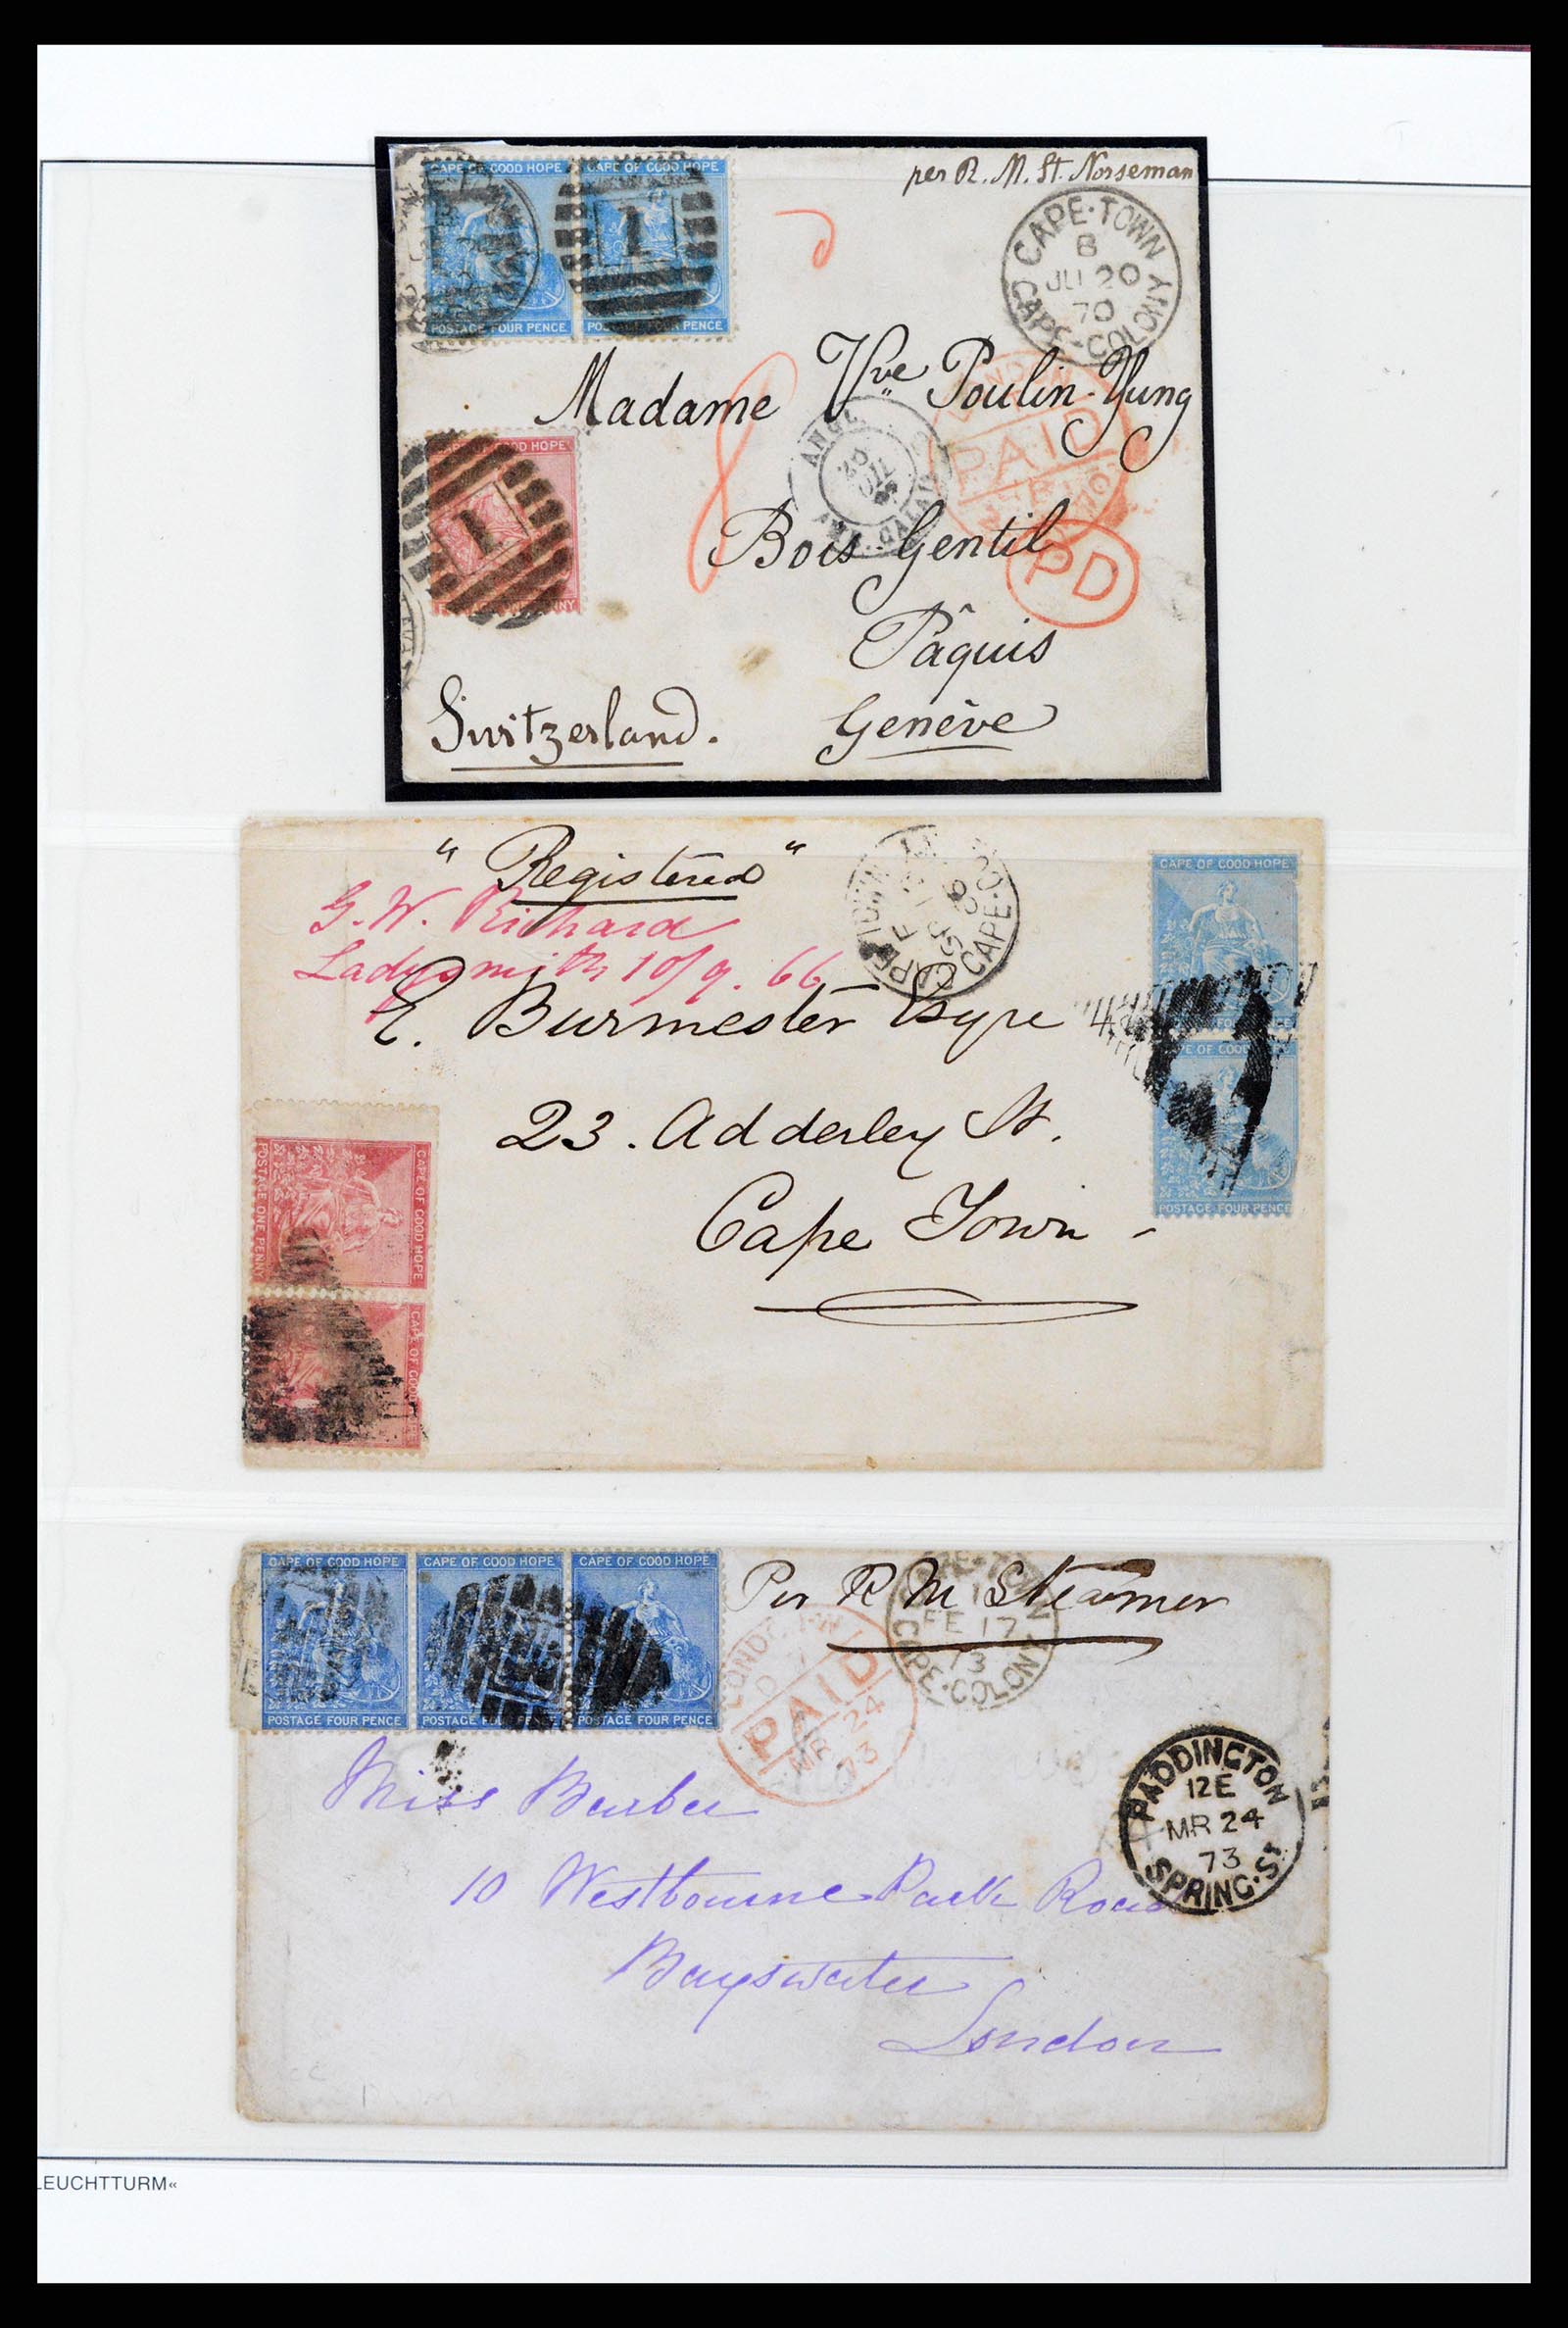 CAPE OF GOOD HOPE
CAPE OF GOOD HOPE
per R. M. St. Norseman
POSTAGE FOUR PENCE
POSTAGE FOUR PENCE
CAPE·TOWN
B
JU 20
70
CAPE-COLONY
Madame Vve Poulin-Yung
1
GOOD HOPE
1
ANGL.
CALAIS
LONDON
PAID
70
Bois Gentil
PD
Pâquis
Switzerland.
Genève
"Registered"
G. W. Richard
Ladysmith 10/9. 66
CAPE
CAPE·CO
CAPE OF GOOD HOPE
E. Burmester Esqre
FOUR PENCE
OF GOOD
POSTAGE FOUR PENCE
23. Adderley St.
Cape Town
CAPE OF GOOD HOPE
POSTAGE ONE PENNY
CAPE OF GOOD
CAPE OF GOOD HOPE
CAPE OF GOOD HOPE
CAPE OF GOOD HOPE
POSTAGE FOUR PENCE
POSTAGE FOUR PENCE
POSTAGE FOUR PENCE
Per R M Steamer
FE 17
73
CAPE·COLONY
LONDON
PAID
MR 24
73
Miss Barber
PADDINGTON
12E
MR 24
73
SPRING·ST
10 Westbourne Park Road
Bayswater
London
LEUCHTTURM«